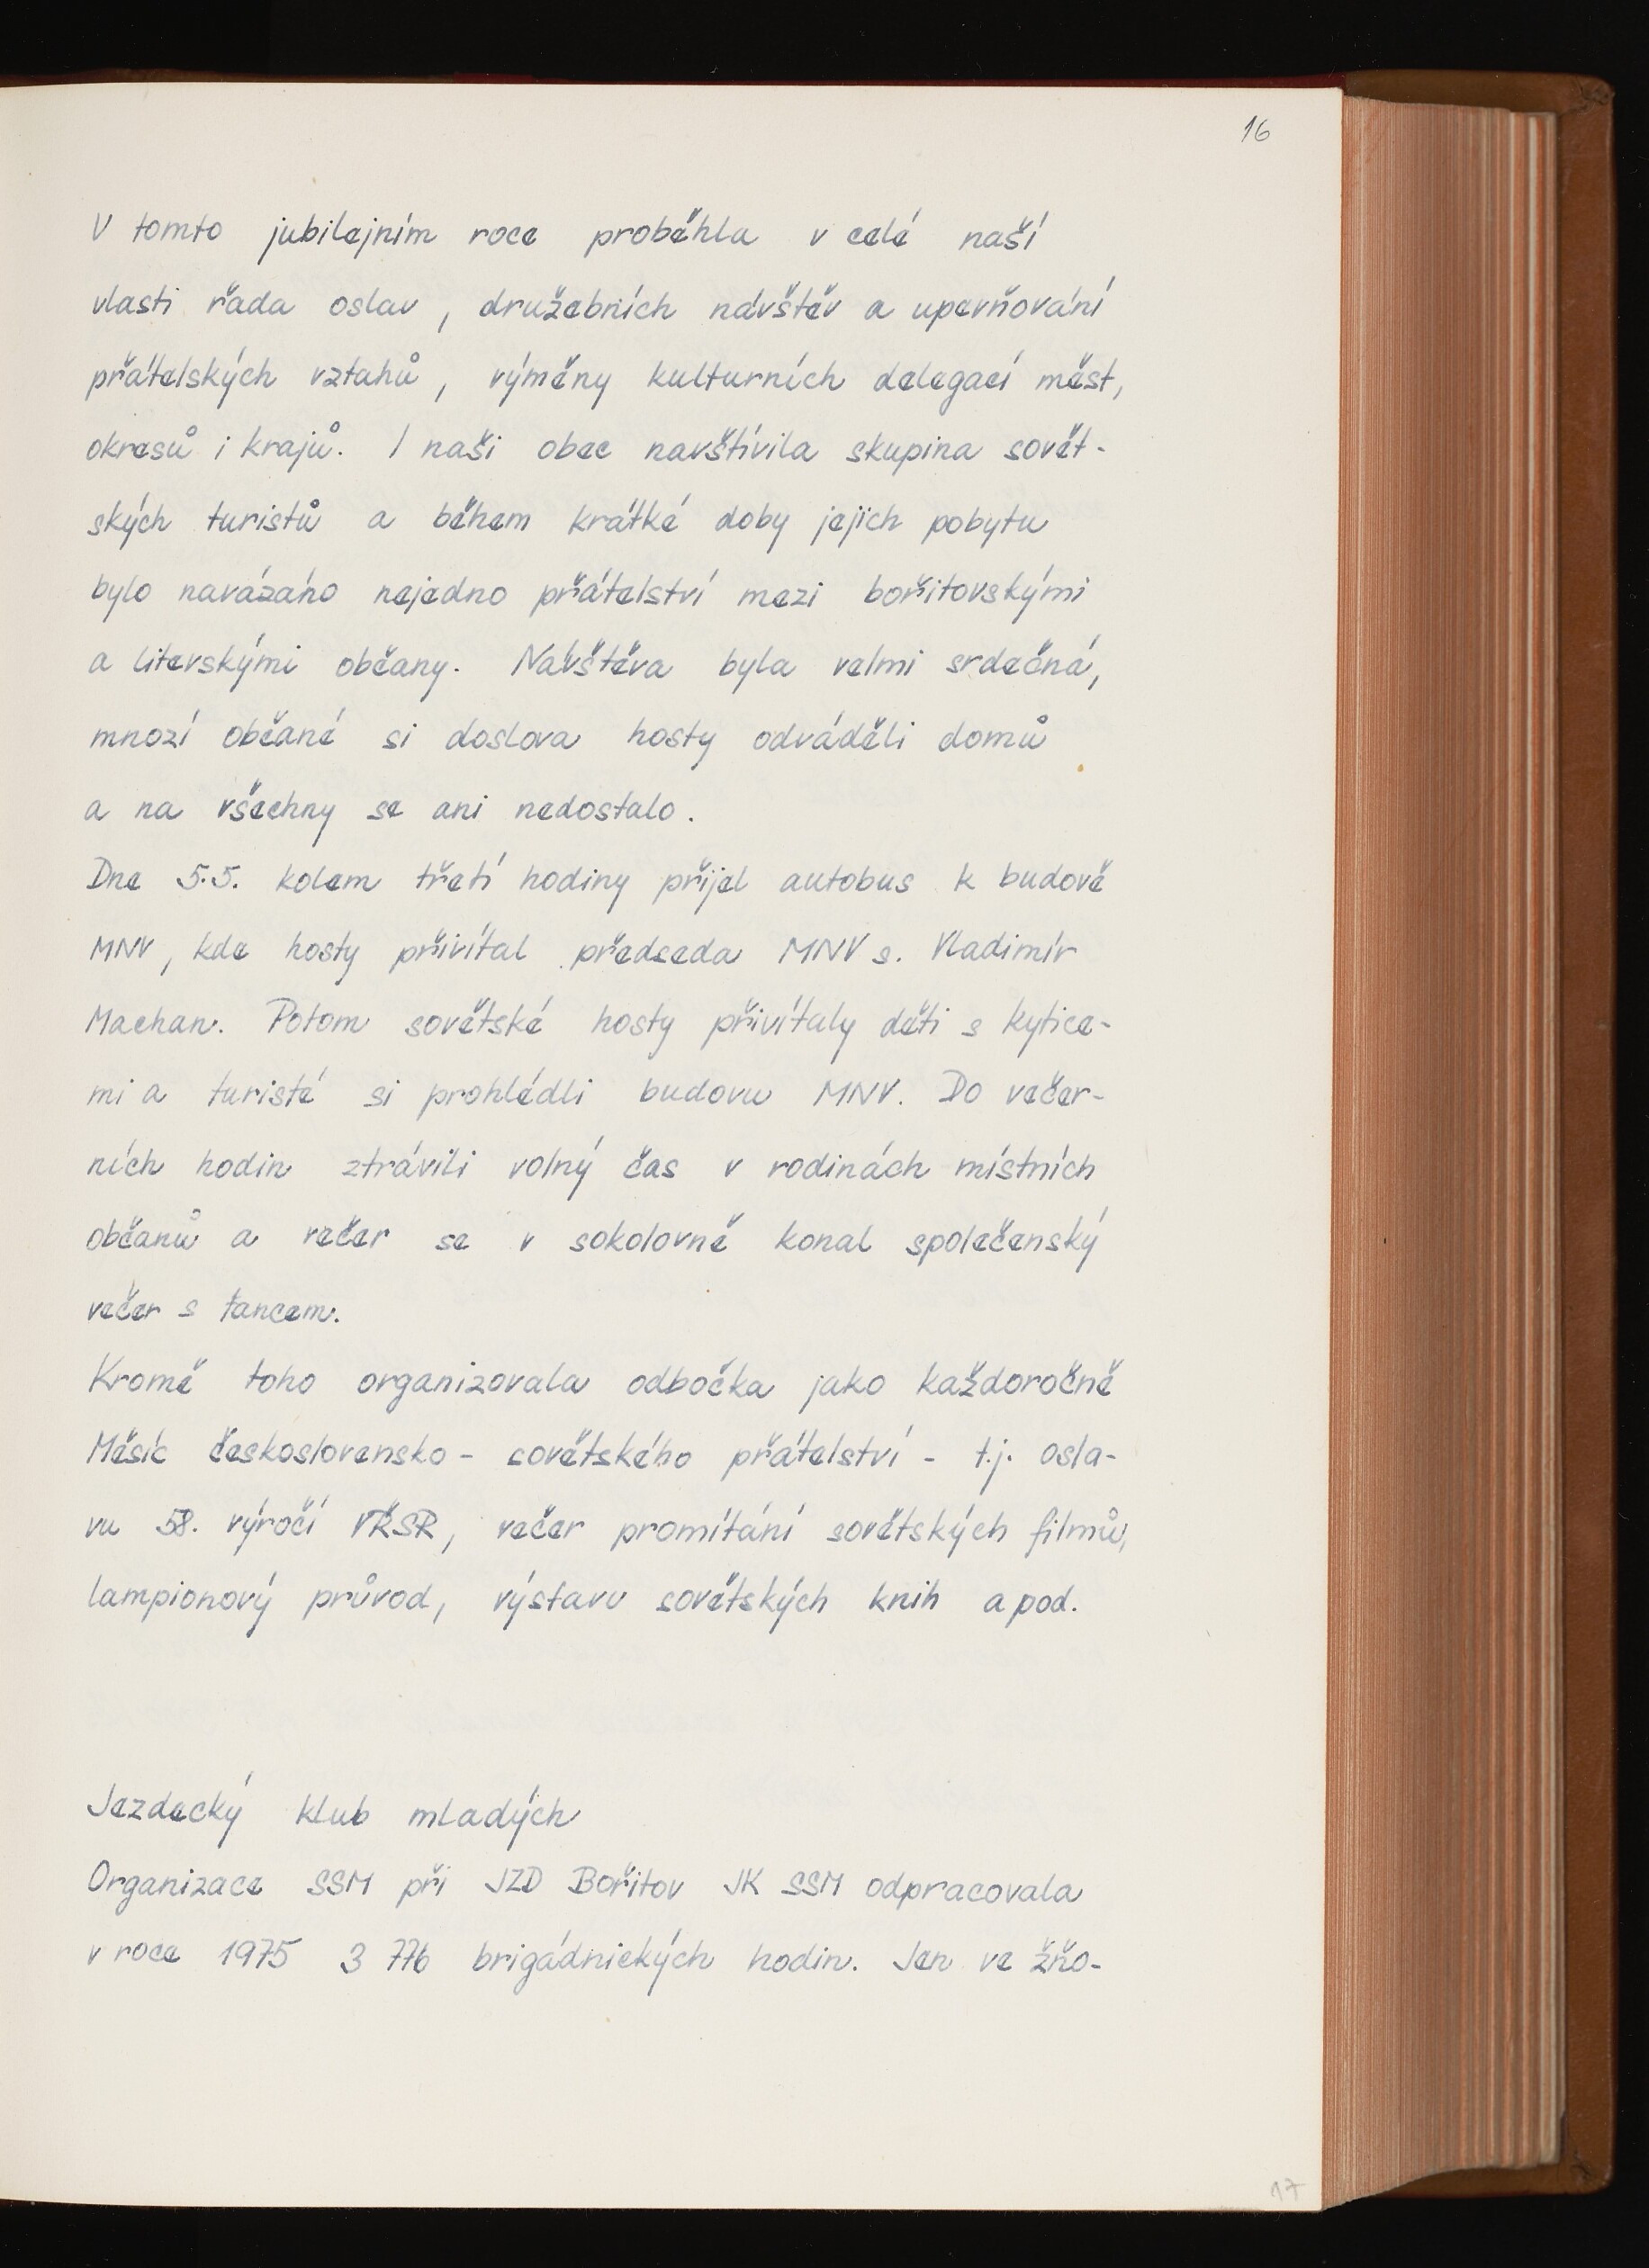 16
V tomto jubilejním roce proběhla v celé naší
vlasti řada oslav, družebních návštěv a upevňování
přátelských vztahů, výměny kulturních delegací měst,
okresů i krajů. I naši obec navštívila skupina sovět-
ských turistů a během krátké doby jejich pobytu
bylo navázáno nejedno přátelství mezi bořitovskými
a litevskými občany. Návštěva byla velmi srdečná,
mnozí občané si doslova hosty odváděli domů
a na všechny se ani nedostalo.
Dne 5.5. kolem třetí hodiny přijel autobus k budově
MNV, kde hosty přivítal předseda MNV s. Vladimír
Machan. Potom sovětské hosty přivítaly děti s kytice-
mi a turisté si prohlédli budovu MNV. Do večer-
ních hodin ztrávili volný čas v rodinách místních
občanů a večer se v sokolovně konal společenský
večer s tancem.
Kromě toho organizovala odbočka jako každoročně
Měsíc československo - sovětského přátelství - t.j. osla-
vu 58. výročí VŘSR, večer promítání sovětských filmů,
lampionový průvod, výstavu sovětských knih a pod.
Jezdecký klub mladých
Organizace SSM při JZD Bořitov JK SSM odpracovala
v roce 1975 3 776 brigádnických hodin. Jen ve žňo-
17